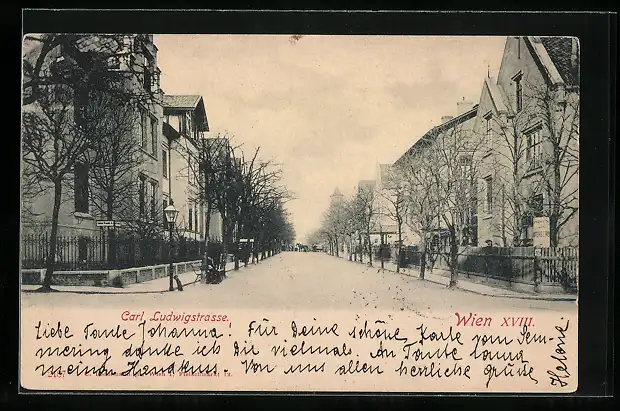 Carl, Ludwigstrasse.
Wien XVIII.
Liebe Tante Johanna! Für Deine schöne Karte vom Sem-
mering danke ich Dir vielmals. An Tante Laura
meinen Handkuss. Von uns allen herzliche grüße
Helene